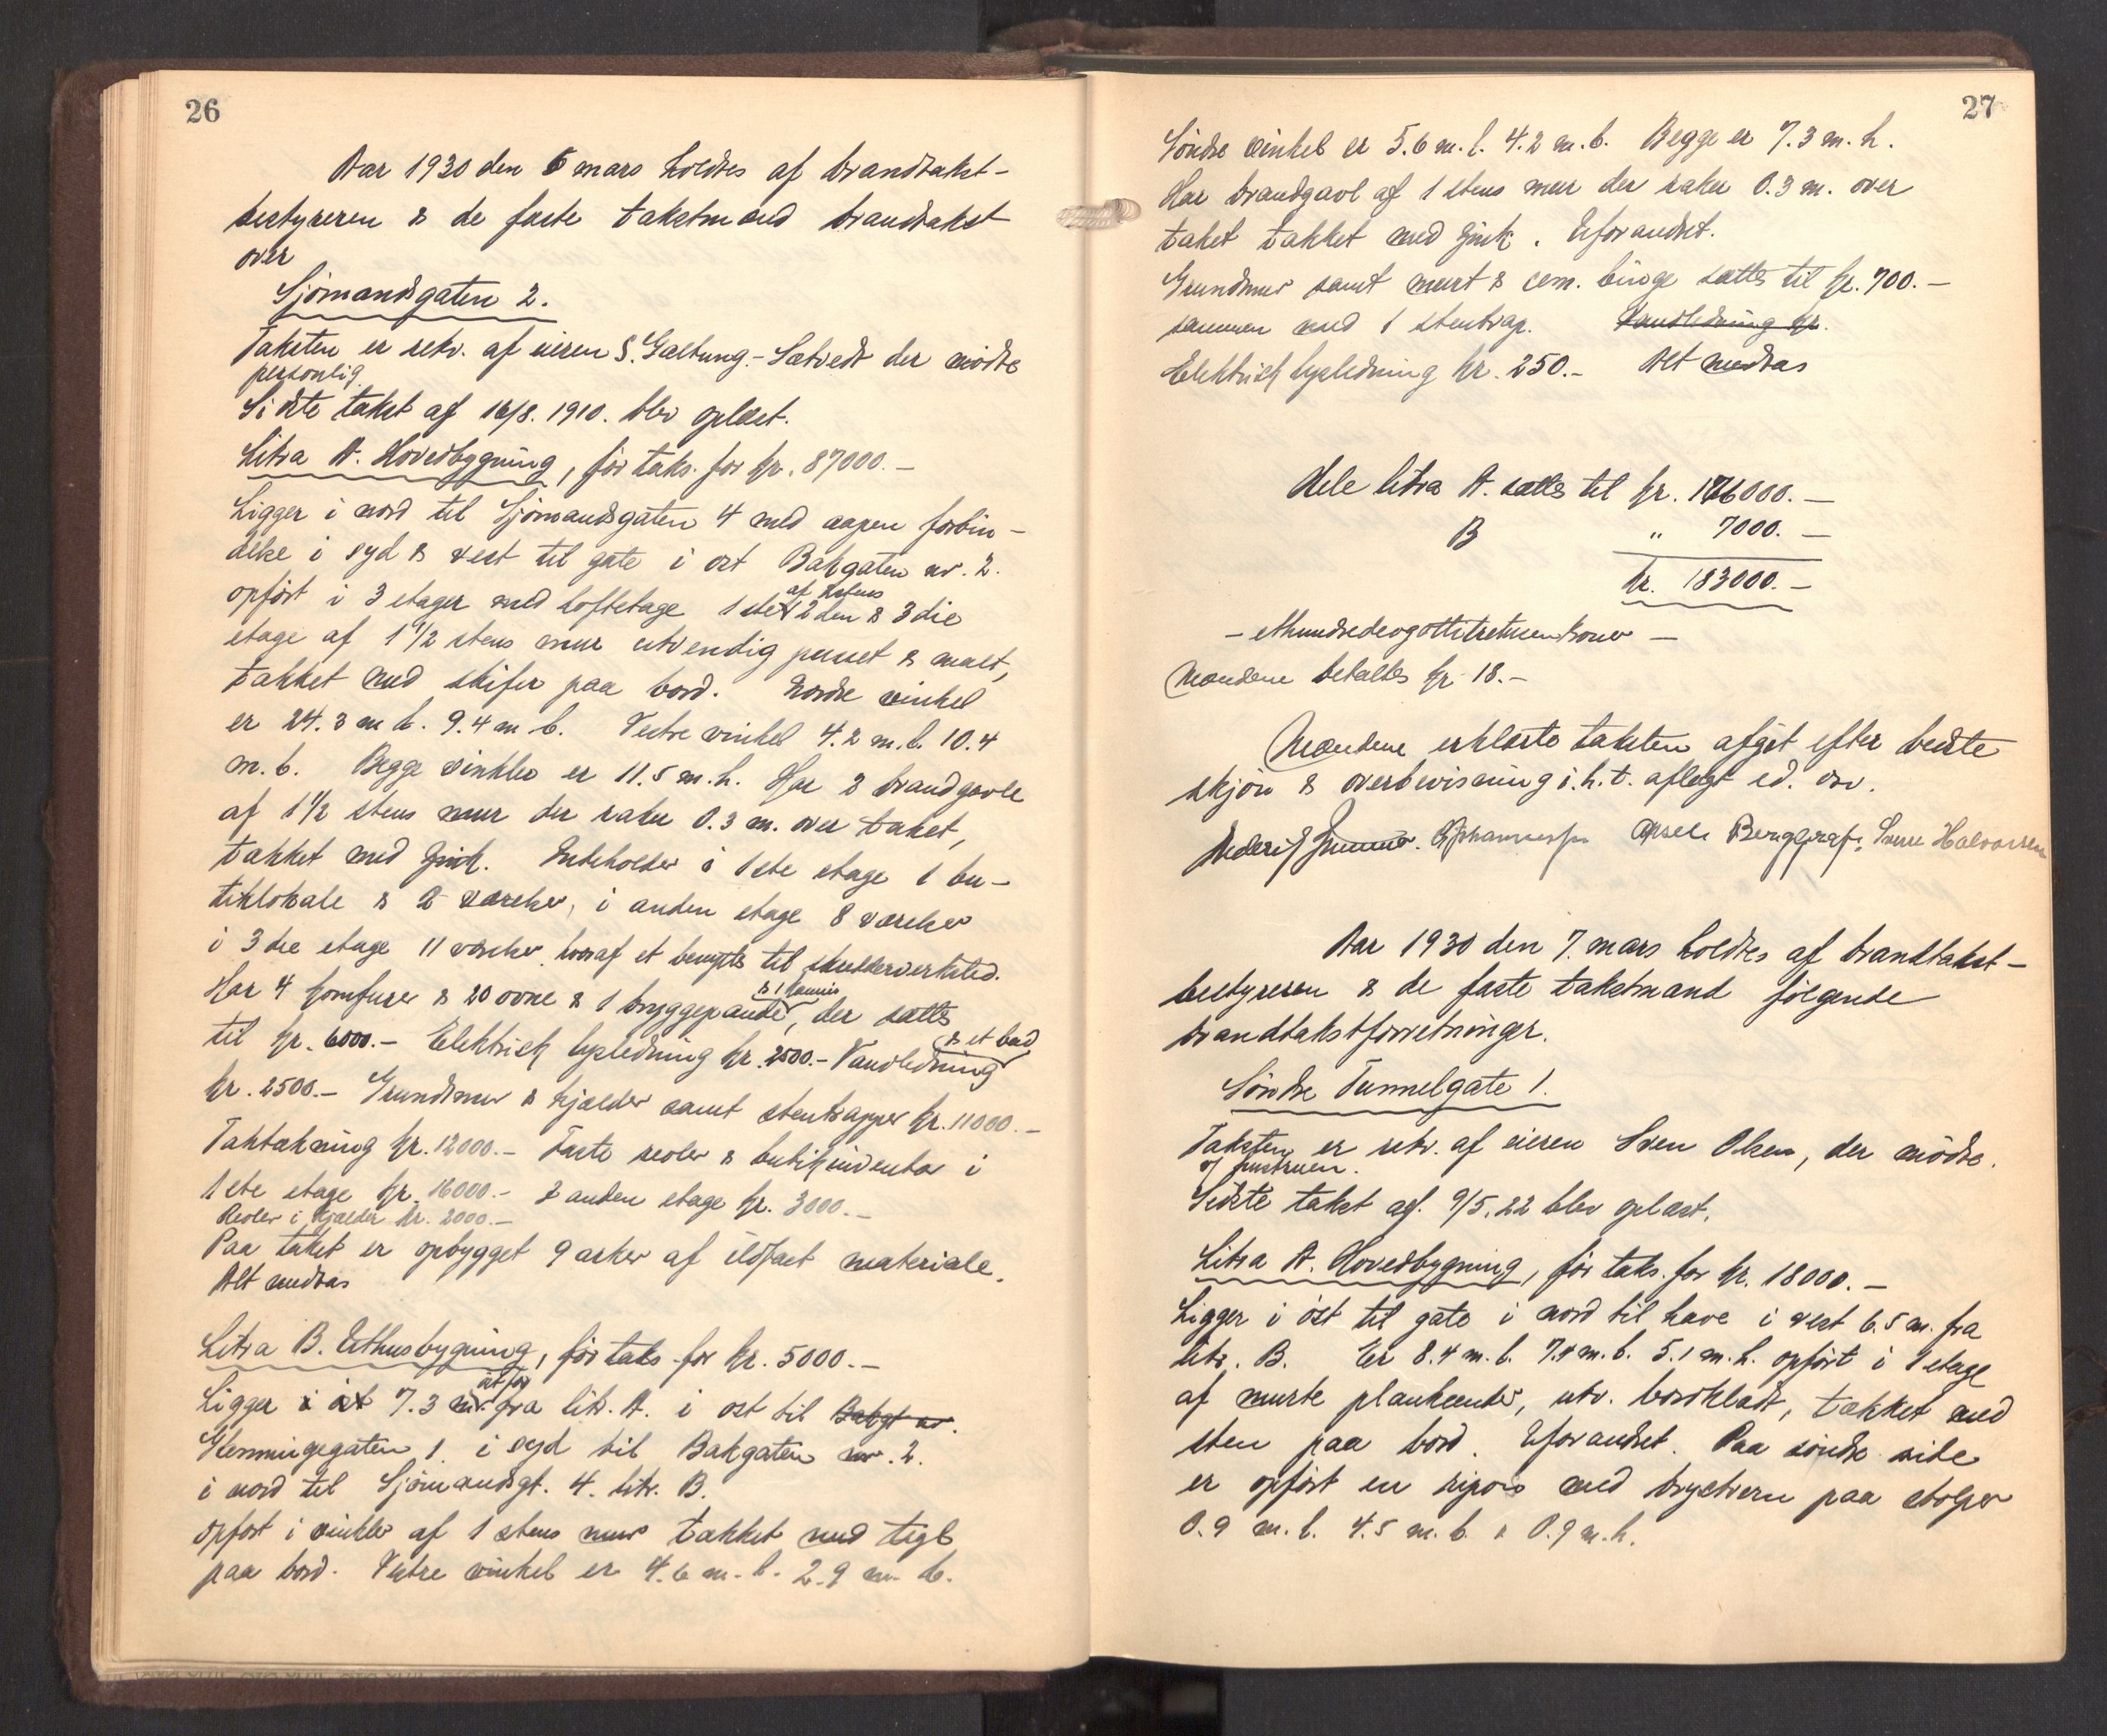 26
Aar 1930 den 6 mars holdtes af brandtakst-
bestyreren & de faste takstmænd brandtakst
over
Sjömandsgaten 2.
Taksten er rekv. af eieren S. Galtung-Sætvedt der mödte
personlig
Sidste takst af 16/8. 1910. blev oplæst.
Litra A. Hovedbygning, för taks. for kr. 87000.-
Ligger i nord til Sjömandsgaten 4 med aapen forbin-
delse i syd & vest til gate i ost Bakgaten nr. 2.
opfört i 3 etager med loftetage 1ste af 2stens 2den & 3die
etage af 1 1/2 stens mur utvendig pusset & malt,
tækket med skifer paa bord. Nordre vinkel
er 24.3 m l. 9.4 m b. Vestre vinkel 4.2 m. l. 10.4
m. b. Begge vinkler er 11.5 m. h. Har 2 brandgavle
af 1 1/2 stens mur der raker 0.3 m. over taket,
tækket med zink. Indeholder i 1ste etage 1 bu-
tiklokale & 2 værelser, i anden etage 8 værelser
i 3die etage 11 værelser, hvoraf et benyttes til skredderverksted.
Har 4 komfurer & 20 ovne & 1 bryggepande & 1 kamin, der sættes
til kr. 6000.- Elektrisk lysledning kr. 2500.- Vandledning & et bad
kr. 2500.- Grundmur & kjælder samt stentrapper kr. 11000.-
Taktækning kr. 12000.- Faste reoler & butikinventar i
1ste etage kr. 16000.- I anden etage kr. 3000.-
Reoler i kjælder kr. 2000.-
Paa taket er opbygget 9 arker af ildfast materiale.
Alt medtas
Litra B. Uthusbygning, för taks. for kr. 5000.-
Ligger i öst 7.3 m öst for fra litr. A. i ost til Bakgt nr.
Glenningegaten 1. i syd til Bakgaten nr. 2.
i nord til Sjömandsgt. 4. litr. B.
opfört i vinkler af 1 stens mur tækket med tegl
paa bord. Vestre vinkel er 4.6 m. l. 2.9 m. b.
27
Söndre vinkel er 5.6 m. l. 4.2 m. b. Begge er 7.3 m. h.
Har brandgavl af 1 stens mur der raker 0.3 m. over
taket tækket med zink. Uforandret.
Grundmur samt murt & cem. binge sættes til kr. 700.-
sammen med 1 stentrap. Vandledning kr.
Elektrisk lysledning kr. 250.- Alt medtas
Hele litra A. sættes til kr. 176000.-
B " 7000.-
kr. 183000.-
- ethundredeogottitretusenkroner -
Mændene betaltes kr 18.-
Mændene erklærte taksten afgit efter bedste
skjön & overbevisning i. h. t. aflagt ed. osv.
Aksel Berggraf. Sven Halvorsen
Aar 1930 den 7. mars holdtes af brandtakst-
bestyreren & de faste takstmænd fölgende
brandtakstforretninger.
Söndre Tunnelgate 1.
Taksten er rekv. af eieren Sven Olsen, der mödte.
v/ hustruen.
Sidste takst af. 9/5. 22 blev oplæst.
Litra A. Hovedbygning, för taks. for kr. 18000.-
Ligger i öst til gate i nord til have i vest 6.5 m. fra
litr. B. Er 8.4 m. l. 7.4 m. b. 5.1 m. h. opfört i 1 etage
af murte plankeender, utv. bordklædt, tækket med
sten paa bord. Uforandret. Paa söndre side
er opfört en ripois med brystvern paa stolper
0.9 m. l. 4.5 m. b. & 0.9 m. h.